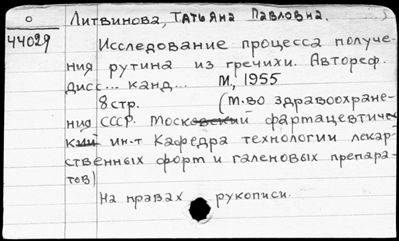 О Литвинова, Татьяна Павловна.
44029
Исследование процесса получе-
ния рутина из гречихи. Автореф.
дисс... канд... М., 1955
8 стр. (М-во здравоохране-
ния СССР. Московский фармацевтичес-
кий ин-т Кафедра технологии лекар-
ственных форм и галеновых препара-
тов)
На правах рукописи.